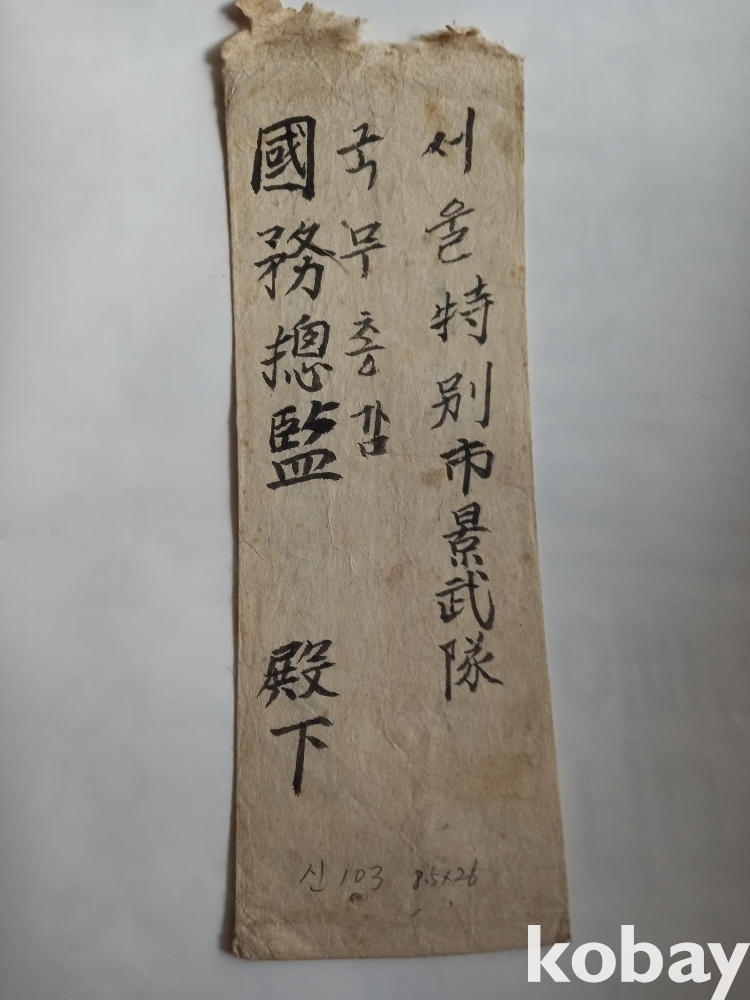 서울特别市景武隊
국무총감
國務摠監 殿下
신 103 8.5x26
kobay